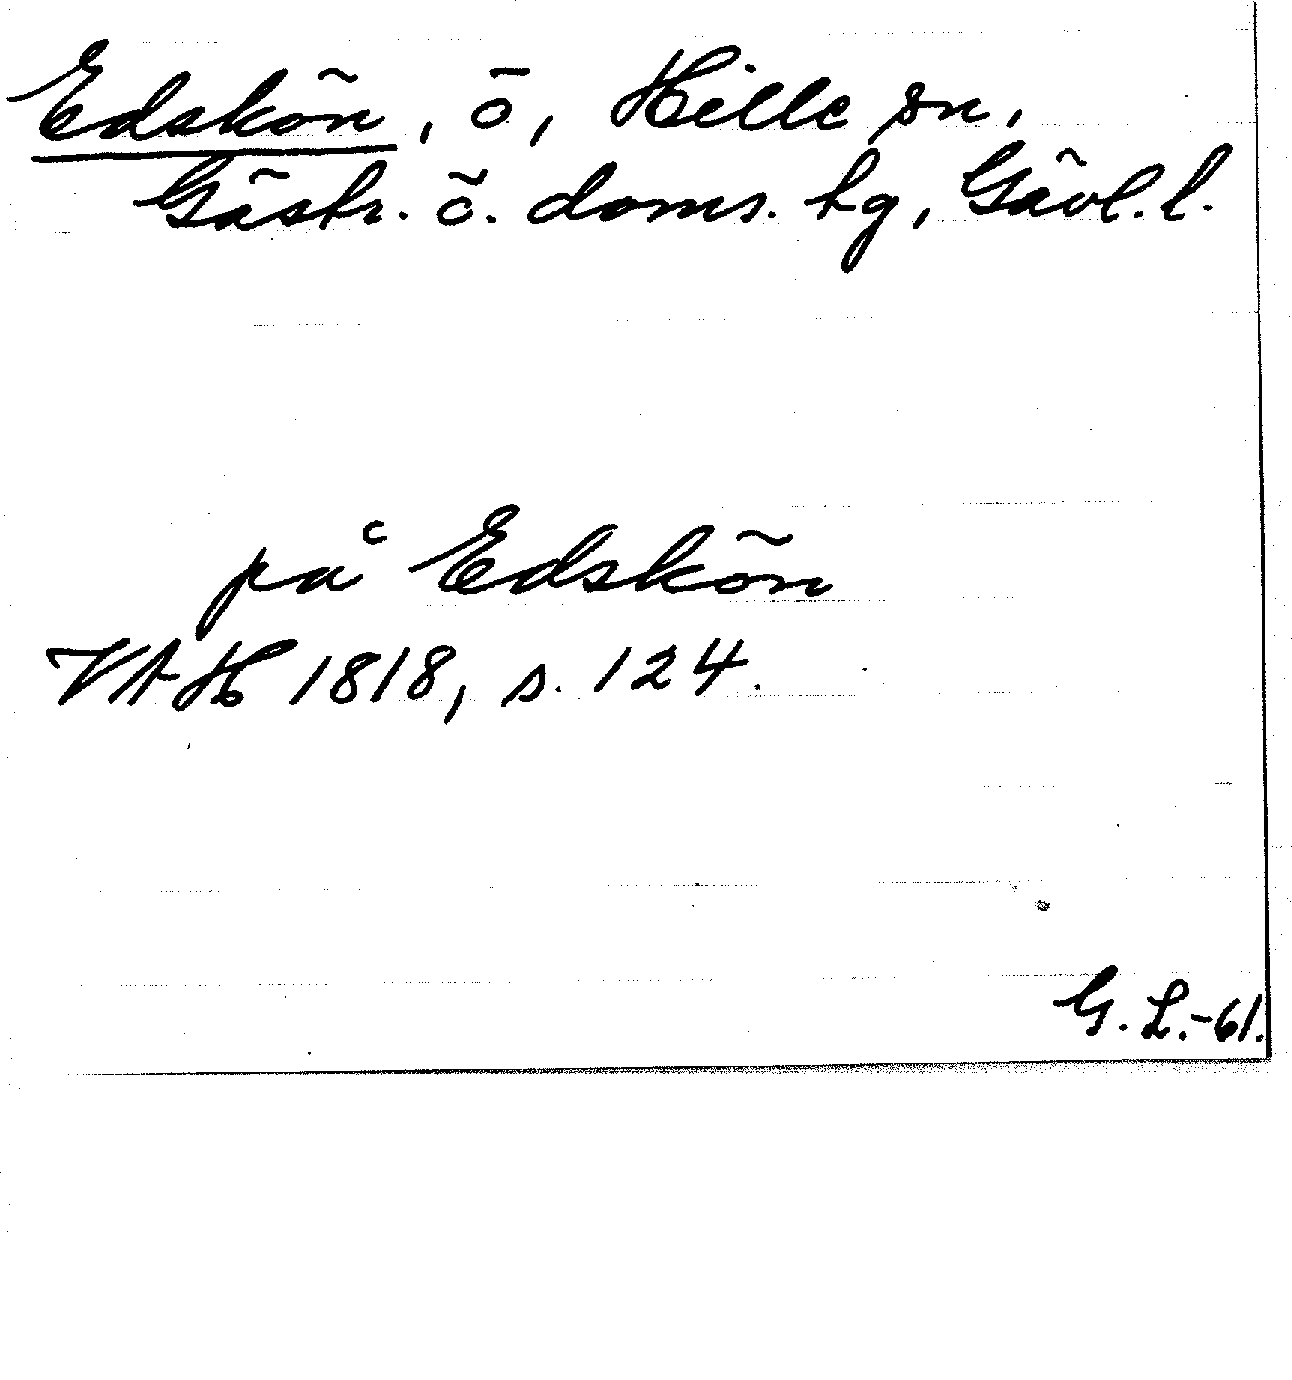 Edskön, ö, Hille sn,
Gästr. ö. doms. tg, Gävl. l.
på Edskön
VAH 1818, s. 124.
G. L.-61.